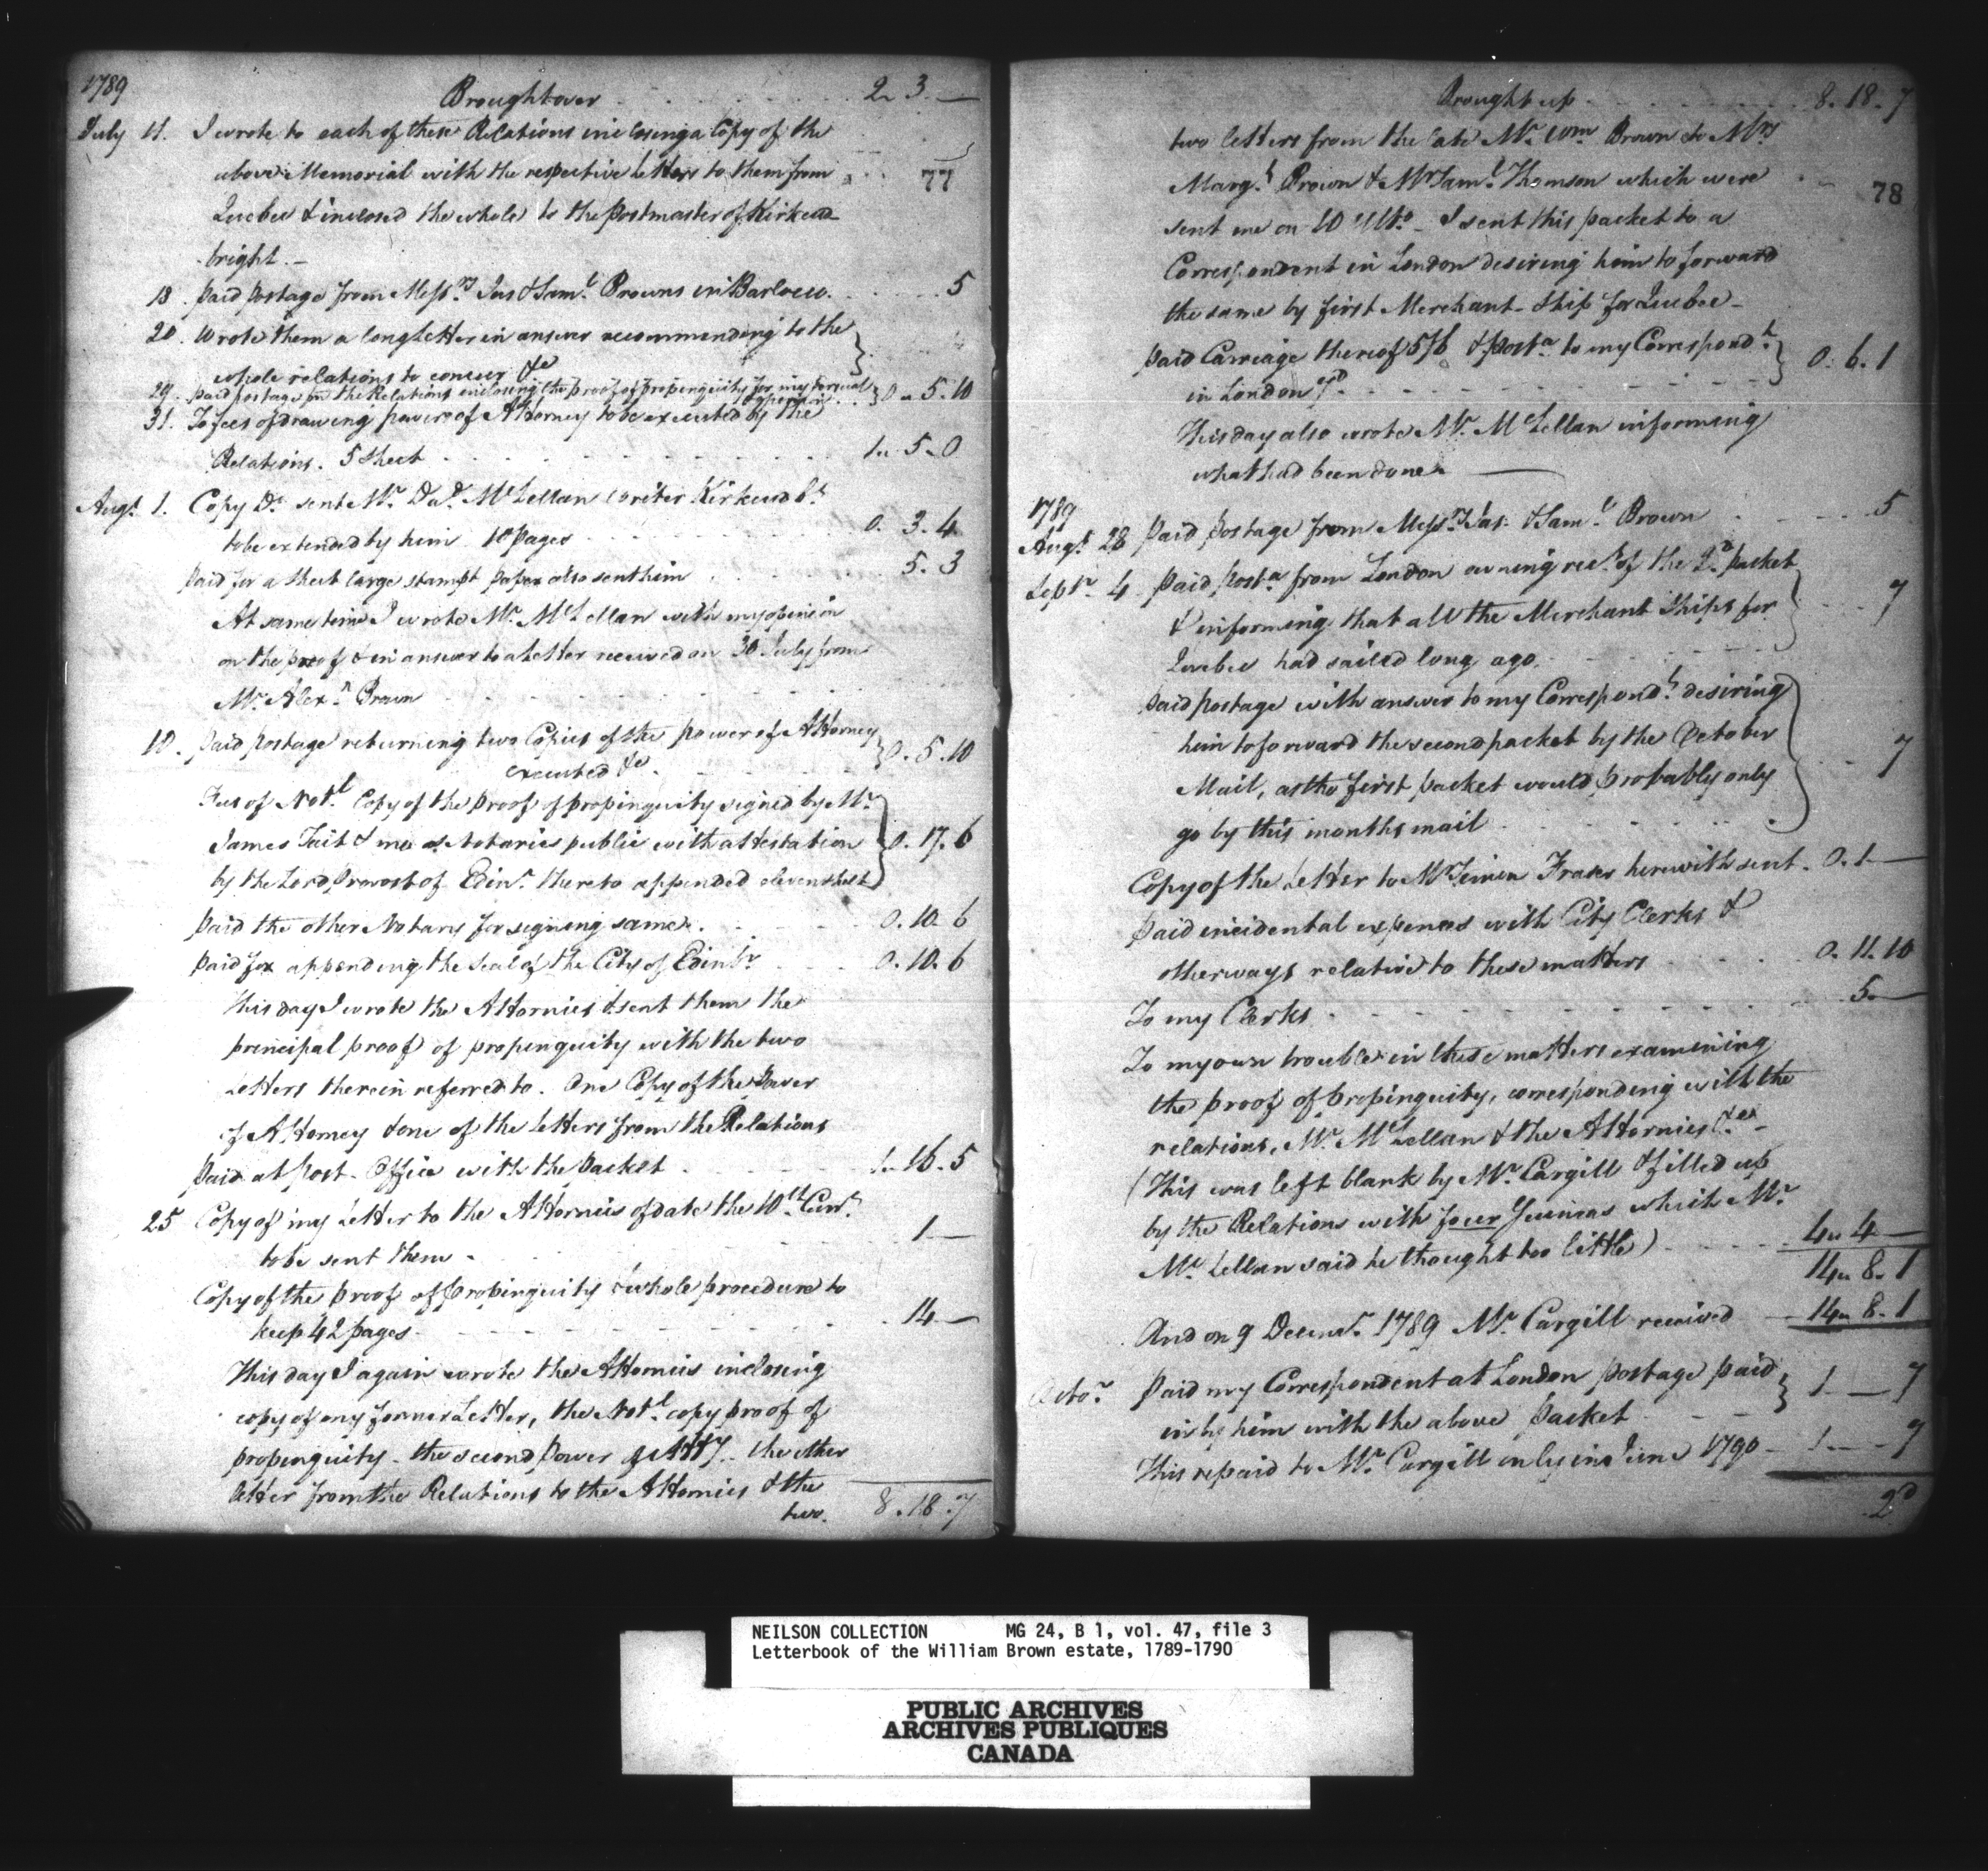 1789
Brought over . . . 2. 3. —
July 11. I wrote to each of these Relations inclosing a Copy of the
above Memorial with the respective Letters to them from
77
Quebec & inclosed the whole to the Postmaster of Kirkcud-
bright. —
18. Paid postage from Messrs. Jas & Saml. Browns in Barlocco . . . 5
20. Wrote them a long Letter in answer recommending to the
whole relations to concur &c
29. Paid postage from the Relations inclosing the proof of propinquity for my perusal & opinion } 0 „ 5. 10
31. To fees of drawing power of Attorney to be executed by the
Relations. 5 Sheet . . . 1 „ 5. 0
Augt. 1. Copy Do. sent Mr. Dad. McLellan writer Kirkcudbt.
to be extended by him 10 pages . . . 0. 3. 4
Paid for a sheet large stampt paper also sent him . . . 5. 3
At same time I wrote Mr. McLellan with my opinion
on the proof & in answer to a Letter received on 30 July from
Mr. Alexr. Brown
10. Paid postage returning two Copies of the power of Attorney
executed &c. } 0. 5. 10
Fees of Notl. Copy of the proof of propinquity signed by Mr.
James Tait & me as Notaries public with attestation } 0. 17. 6
by the Lord Provost of Edinr. thereto appended eleven sheet
Paid the other Notary for signing same . . . 0. 10. 6
Paid for appending the Seal of the City of Edinbr. . . . 0. 10. 6
This day I wrote the Attornies & sent them the
principal proof of propinquity with the two
Letters therein referred to. One Copy of the Power
of Attorney & one of the Letters from the Relations
Paid at Post-Office with the Packet . . . 1. 16. 5
25 Copy of my Letter to the Attornies of date the 10th. Curt.
to be sent them . . . 1 —
Copy of the proof of propinquity & whole procedure to
keep 42 pages . . . 14 —
This day I again wrote the Attornies inclosing
copy of my former Letter, the Notl. copy proof of
propinquity – the second Power of Atty. the other
letter from the Relations to the Attornies & the
two. 8. 18. 7
Brought up . . . 8. 18. 7
two letters from the late Mr. Wm. Brown to Mrs
Margt. Brown & Mr Saml. Thomson which were
78
sent me on 10 Ulto. – I sent this packet to a
Correspondent in London desiring him to forward
the same by first Merchant-Ship for Quebec –
Paid Carriage thereof 5/6 & posta. to my Correspondt. } 0. 6. 1
in London 7d
This day also wrote Mr. McLellan informing
what had been done —
1789
Augt. 28 Paid postage from Messrs. Jas. & Saml. Brown . . . 5
Septr. 4 Paid posta. from London owning rect. of the 2d. packet
& informing that all the Merchant Ships for } 7
Quebec had sailed long ago
Paid postage with answer to my Correspondt. desiring
him to forward the second packet by the October } 7
Mail, as the first packet would probably only
go by this months mail
Copy of the Letter to Mr Simon Fraser herewith sent . 0. 1 —
Paid incidental expences with City Clerks &
otherways relative to these matters . . . 0. 11. 10
To my Clerks . . . 5 —
To my own trouble in these matters examining
the proof of propinquity, corresponding with the
relations, Mr. McLellan & the Attornies &ca. –
(This was left blank by Mr. Cargill & filled up
by the Relations with four Guineas which Mr
McLellan said he thought too little) . . . 4 „ 4 —
14 „ 8. 1
And on 9 Decemr. 1789 Mr. Cargill received — 14 „ 8. 1
Octor. Paid my Correspondent at London postage paid } 1 — 7
in by him with the above Packet
This repaid to Mr. Cargill only in June 1790 – 1 — 7
2d
NEILSON COLLECTION MG 24, B 1, vol. 47, file 3
Letterbook of the William Brown estate, 1789-1790
PUBLIC ARCHIVES
ARCHIVES PUBLIQUES
CANADA